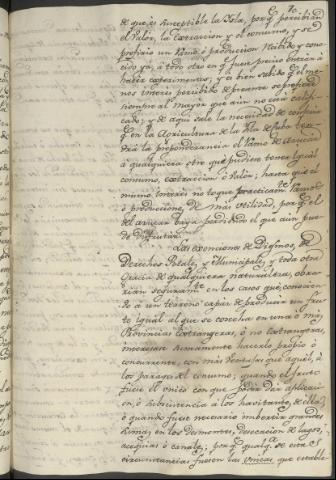 de que es suceptible la Isla, porq.e percibirán
el valor, la extraccion y el consumo, y se
prefirio un Ramo ó produccion recibido y cono-
cido ya, á todo otro en q.e fuese preciso entrar á
hacer experimentos, y es bien sabido q.e el me-
nos interes percibido de presente se prefiere
siempre al mayor que aun no está califi-
cado; y de aquí sale la necesidad de
q.e en la Agricultura de la Isla de Cuba ten-
drá la preponderancia el Ramo de Azucar
á qualquiera otro que pudiera tener igual
consumo, extraccion ó valor; hasta que el
mismo interes no toque practicam.te Ramos
ó producciones de más utilidad, por q.e el
del azucar haya perdido el que aun pue-
de disfrutar.
Las exenciones de Diezmos, de
Derechos Reales y Municipales, y toda otra
Gracia de qualquiera naturaleza, obra-
rian seguram.te en los casos que conocien-
do á un terreno capaz de producir un fru-
to igual al que se cosecha en una ó más
Provincias extrangeras, ó no extrangeras,
interesase sumamente hacerlo propio ó
concurrente, con más ventajas que aquel, á
los parages del consumo; quando el fruto
fuese el unico con que podia dar aplicaci-
on, ó subsistencia á los havitantes de ella;
ó quando fuese necesario imbertir grandes
sumas en los desmontes, desecacion de lagos,
acequias ó canales; porq.e qualq.a de estas
circunstancias fuesen las unicas que estable-